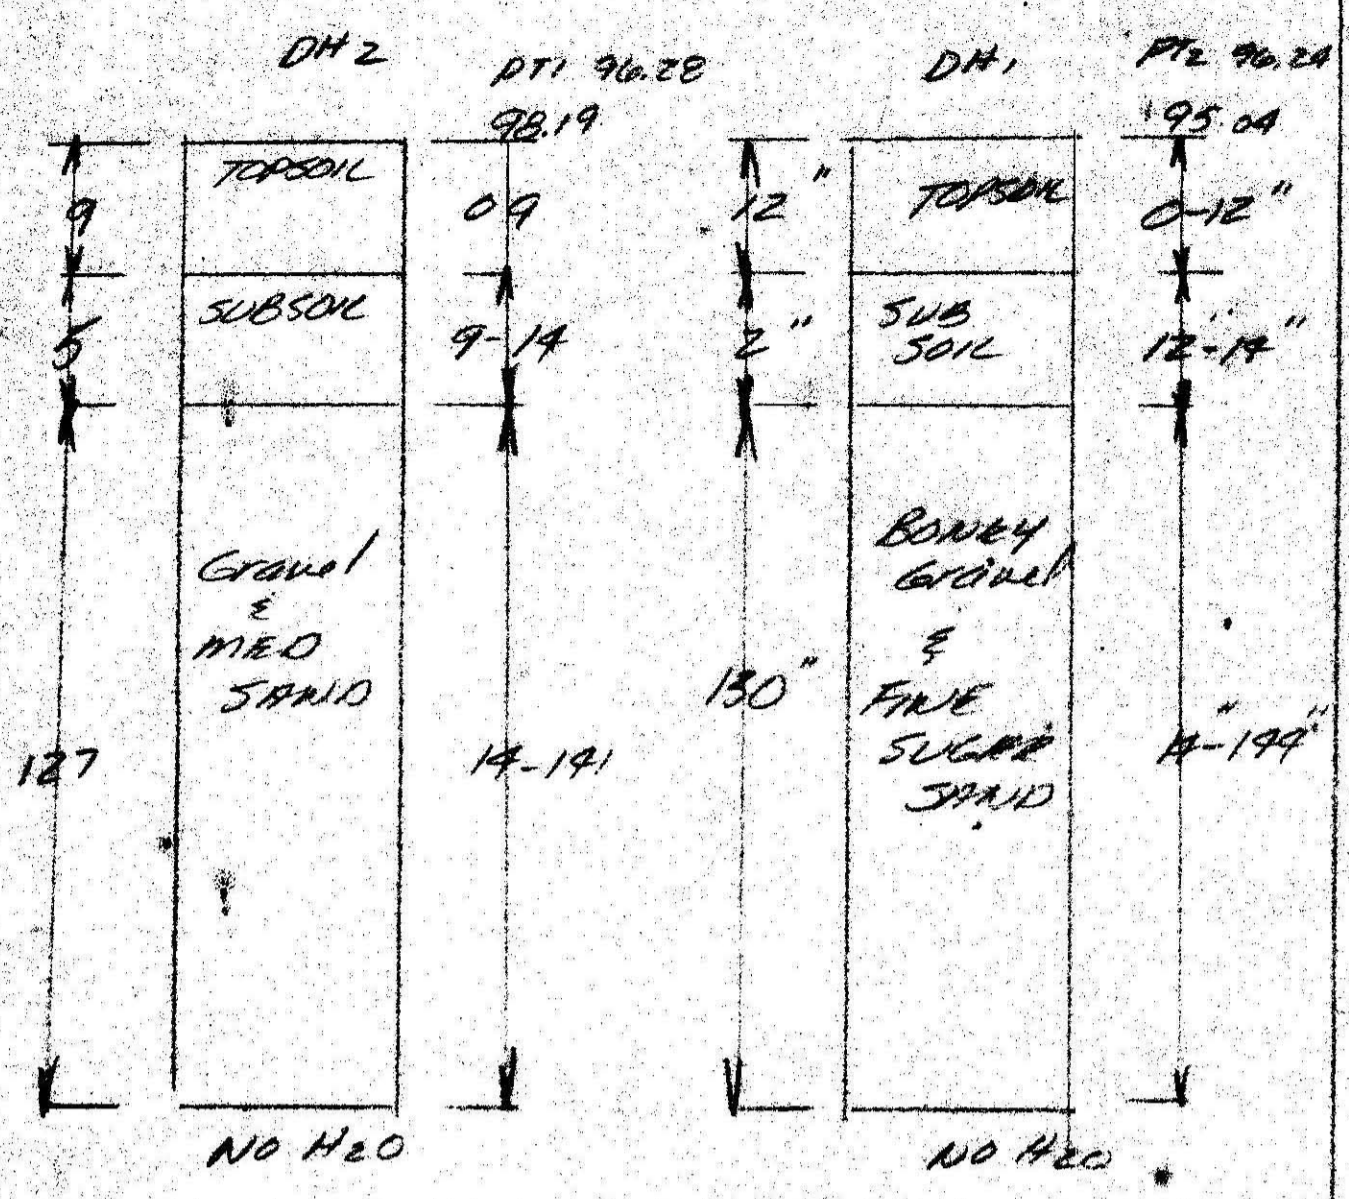 DH 2
PT1 96.28
98.19
9
TOPSOIL
0 9
5
SUBSOIL
9-14
127
Gravel
&
MED
SAND
14-141
NO H2O
DH1
PT2 96.24
95.04
12"
TOPSOIL
0-12"
2"
SUB
SOIL
12"-14"
130"
BONEY
Gravel
&
FINE
SUGAR
SAND
14"-144"
NO H2O